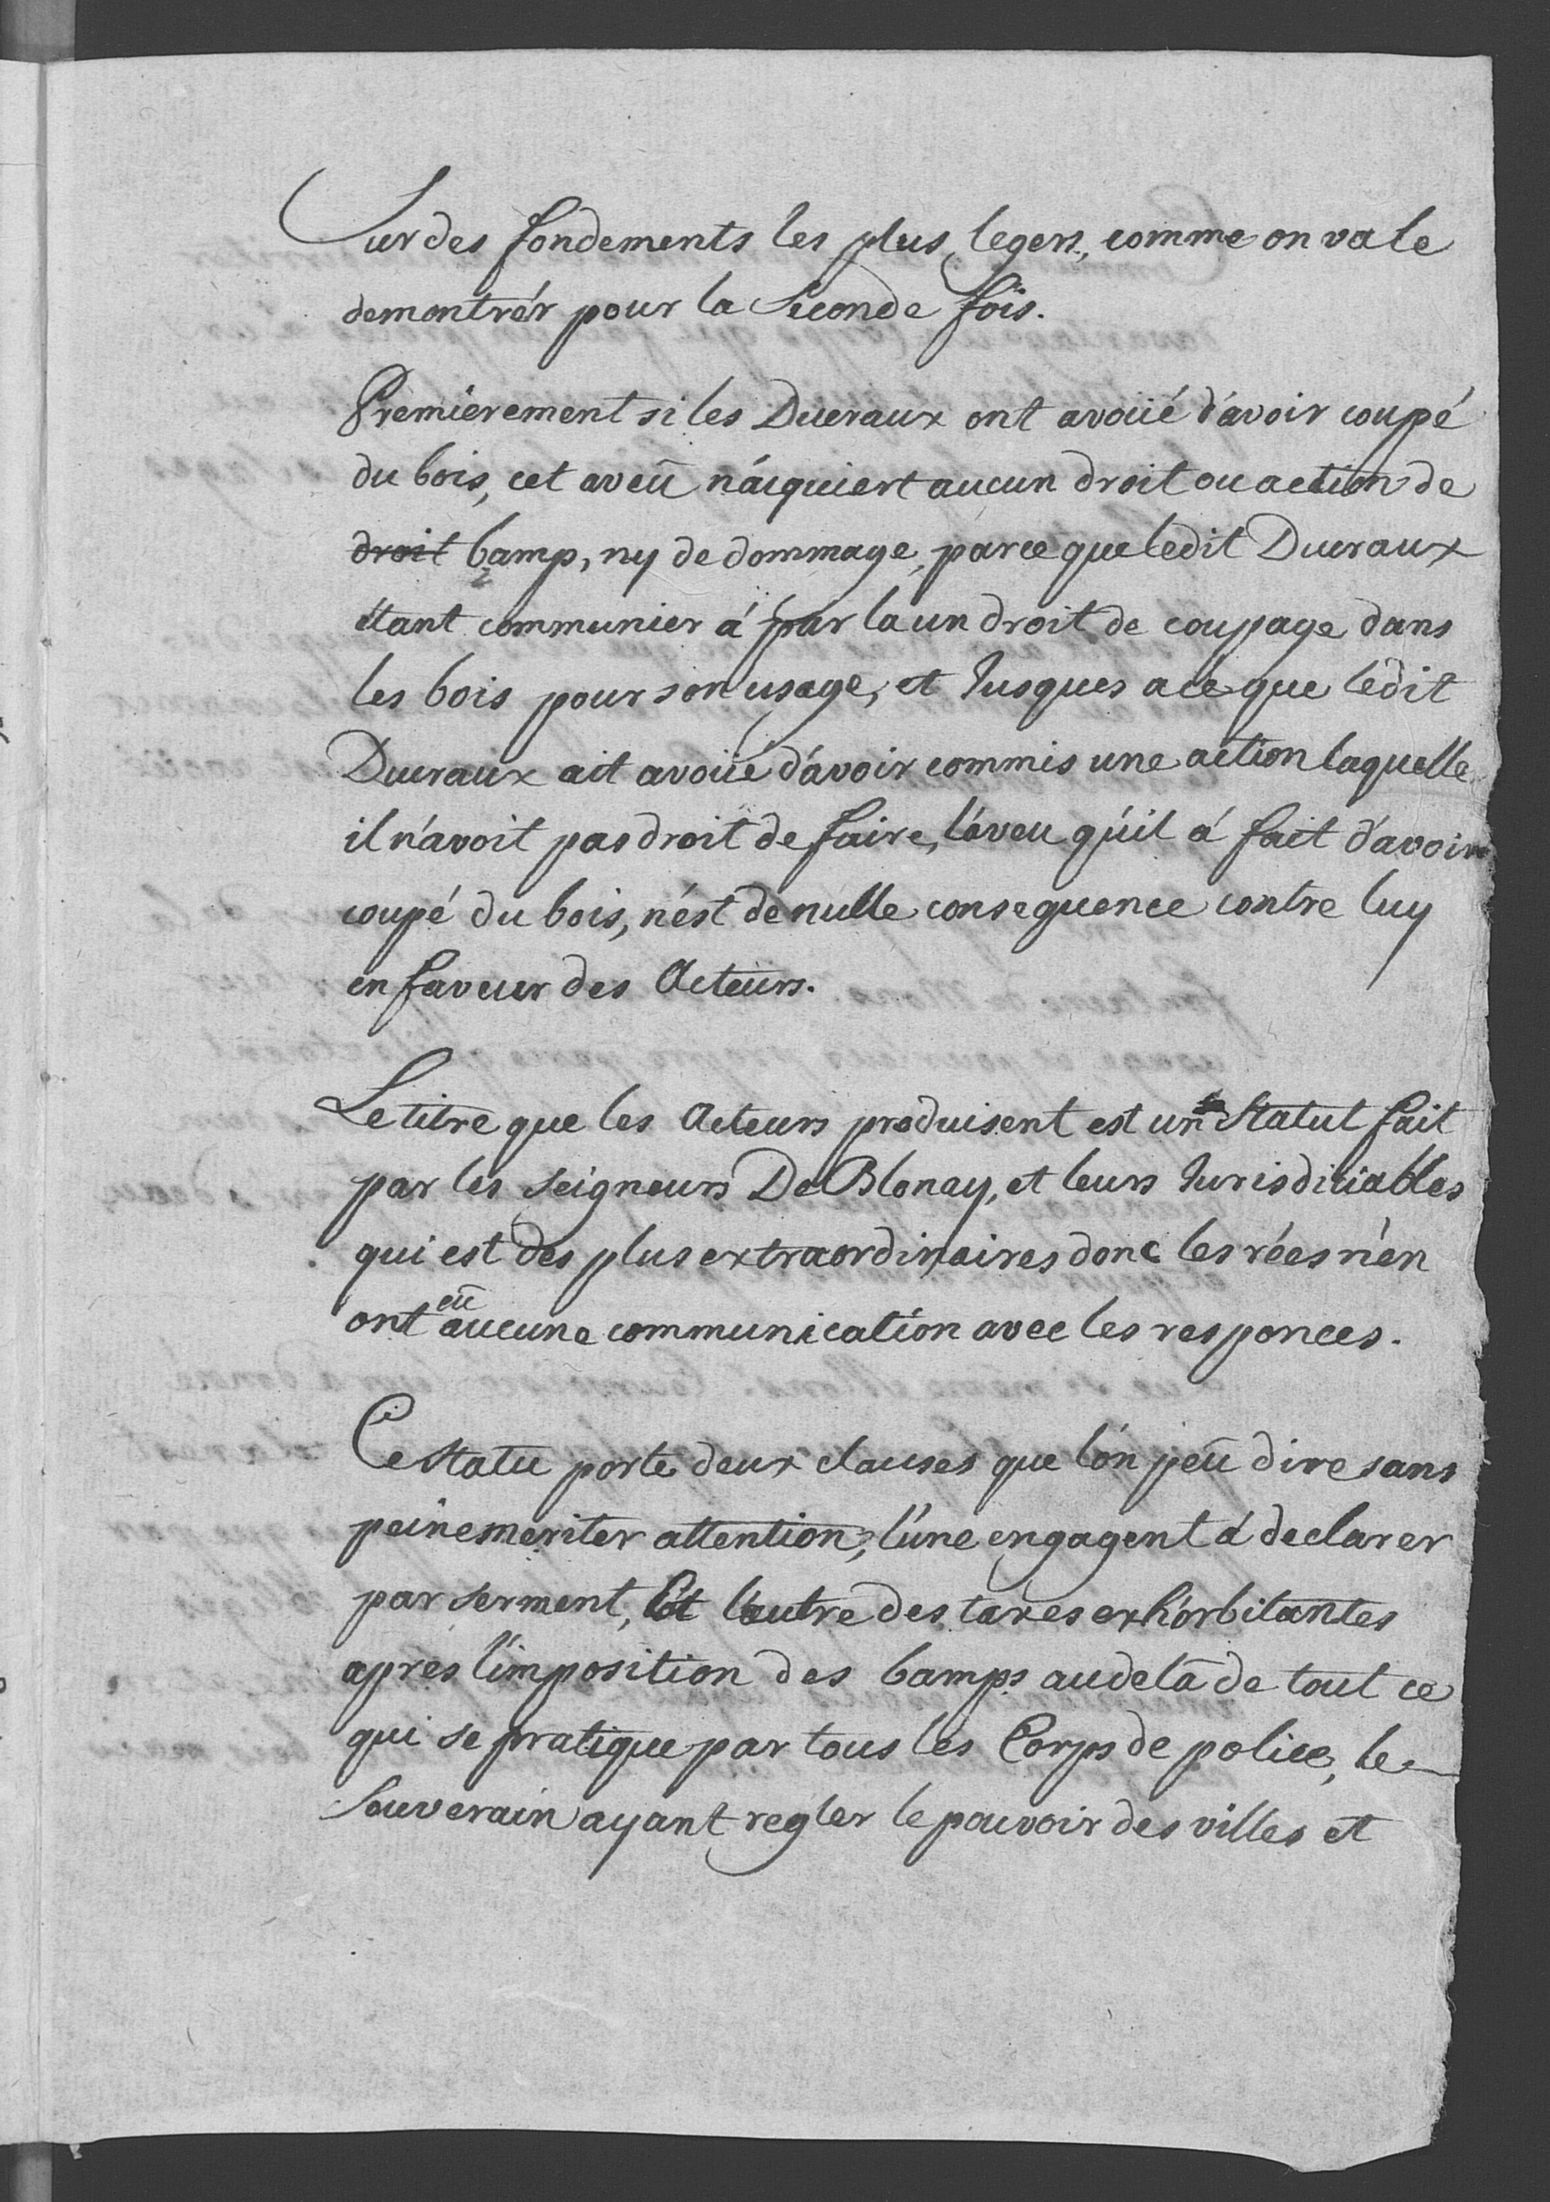 Sur des fondements les plus legers, comme on va le
demontrér pour la Seconde fois.
Premierement si les Ducraux ont avoüé d'avoir coupé
du bois, cet aveü n'aiquiert aucun droit ou action de
droit bamp, ny de dommage, parce que ledit Ducraux
étant communier á par la un droit de coupage dans
les bois pour son usage, et Jusques a ce que ledit
Ducraux ait avoüé d'avoir commis une action laquelle
il n'avoit pas droit de faire, l'aveu qu'il á fait d'avoir
coupé du bois, n'ést de nulle consequence contre luy
en faveur des Acteurs.
Le titre que les Acteurs produisent est un Statut fait
par les seigneurs De Blonay, et leurs Jurisdiciables
qui est des plus extraordinaires donc les rées n'en
ont eü aucune communication avec les responces.
Ce Statu porte deux clauses que l'on peü dire sans
peine meriter attention, l'une engagent á declarer
par serment, Et l'autre des taxes exhorbitantes
apres l'imposition des bamps audela de tout ce
qui se pratique par tous les Corps de police, le
Souverain ayant regler le pouvoir des villes et